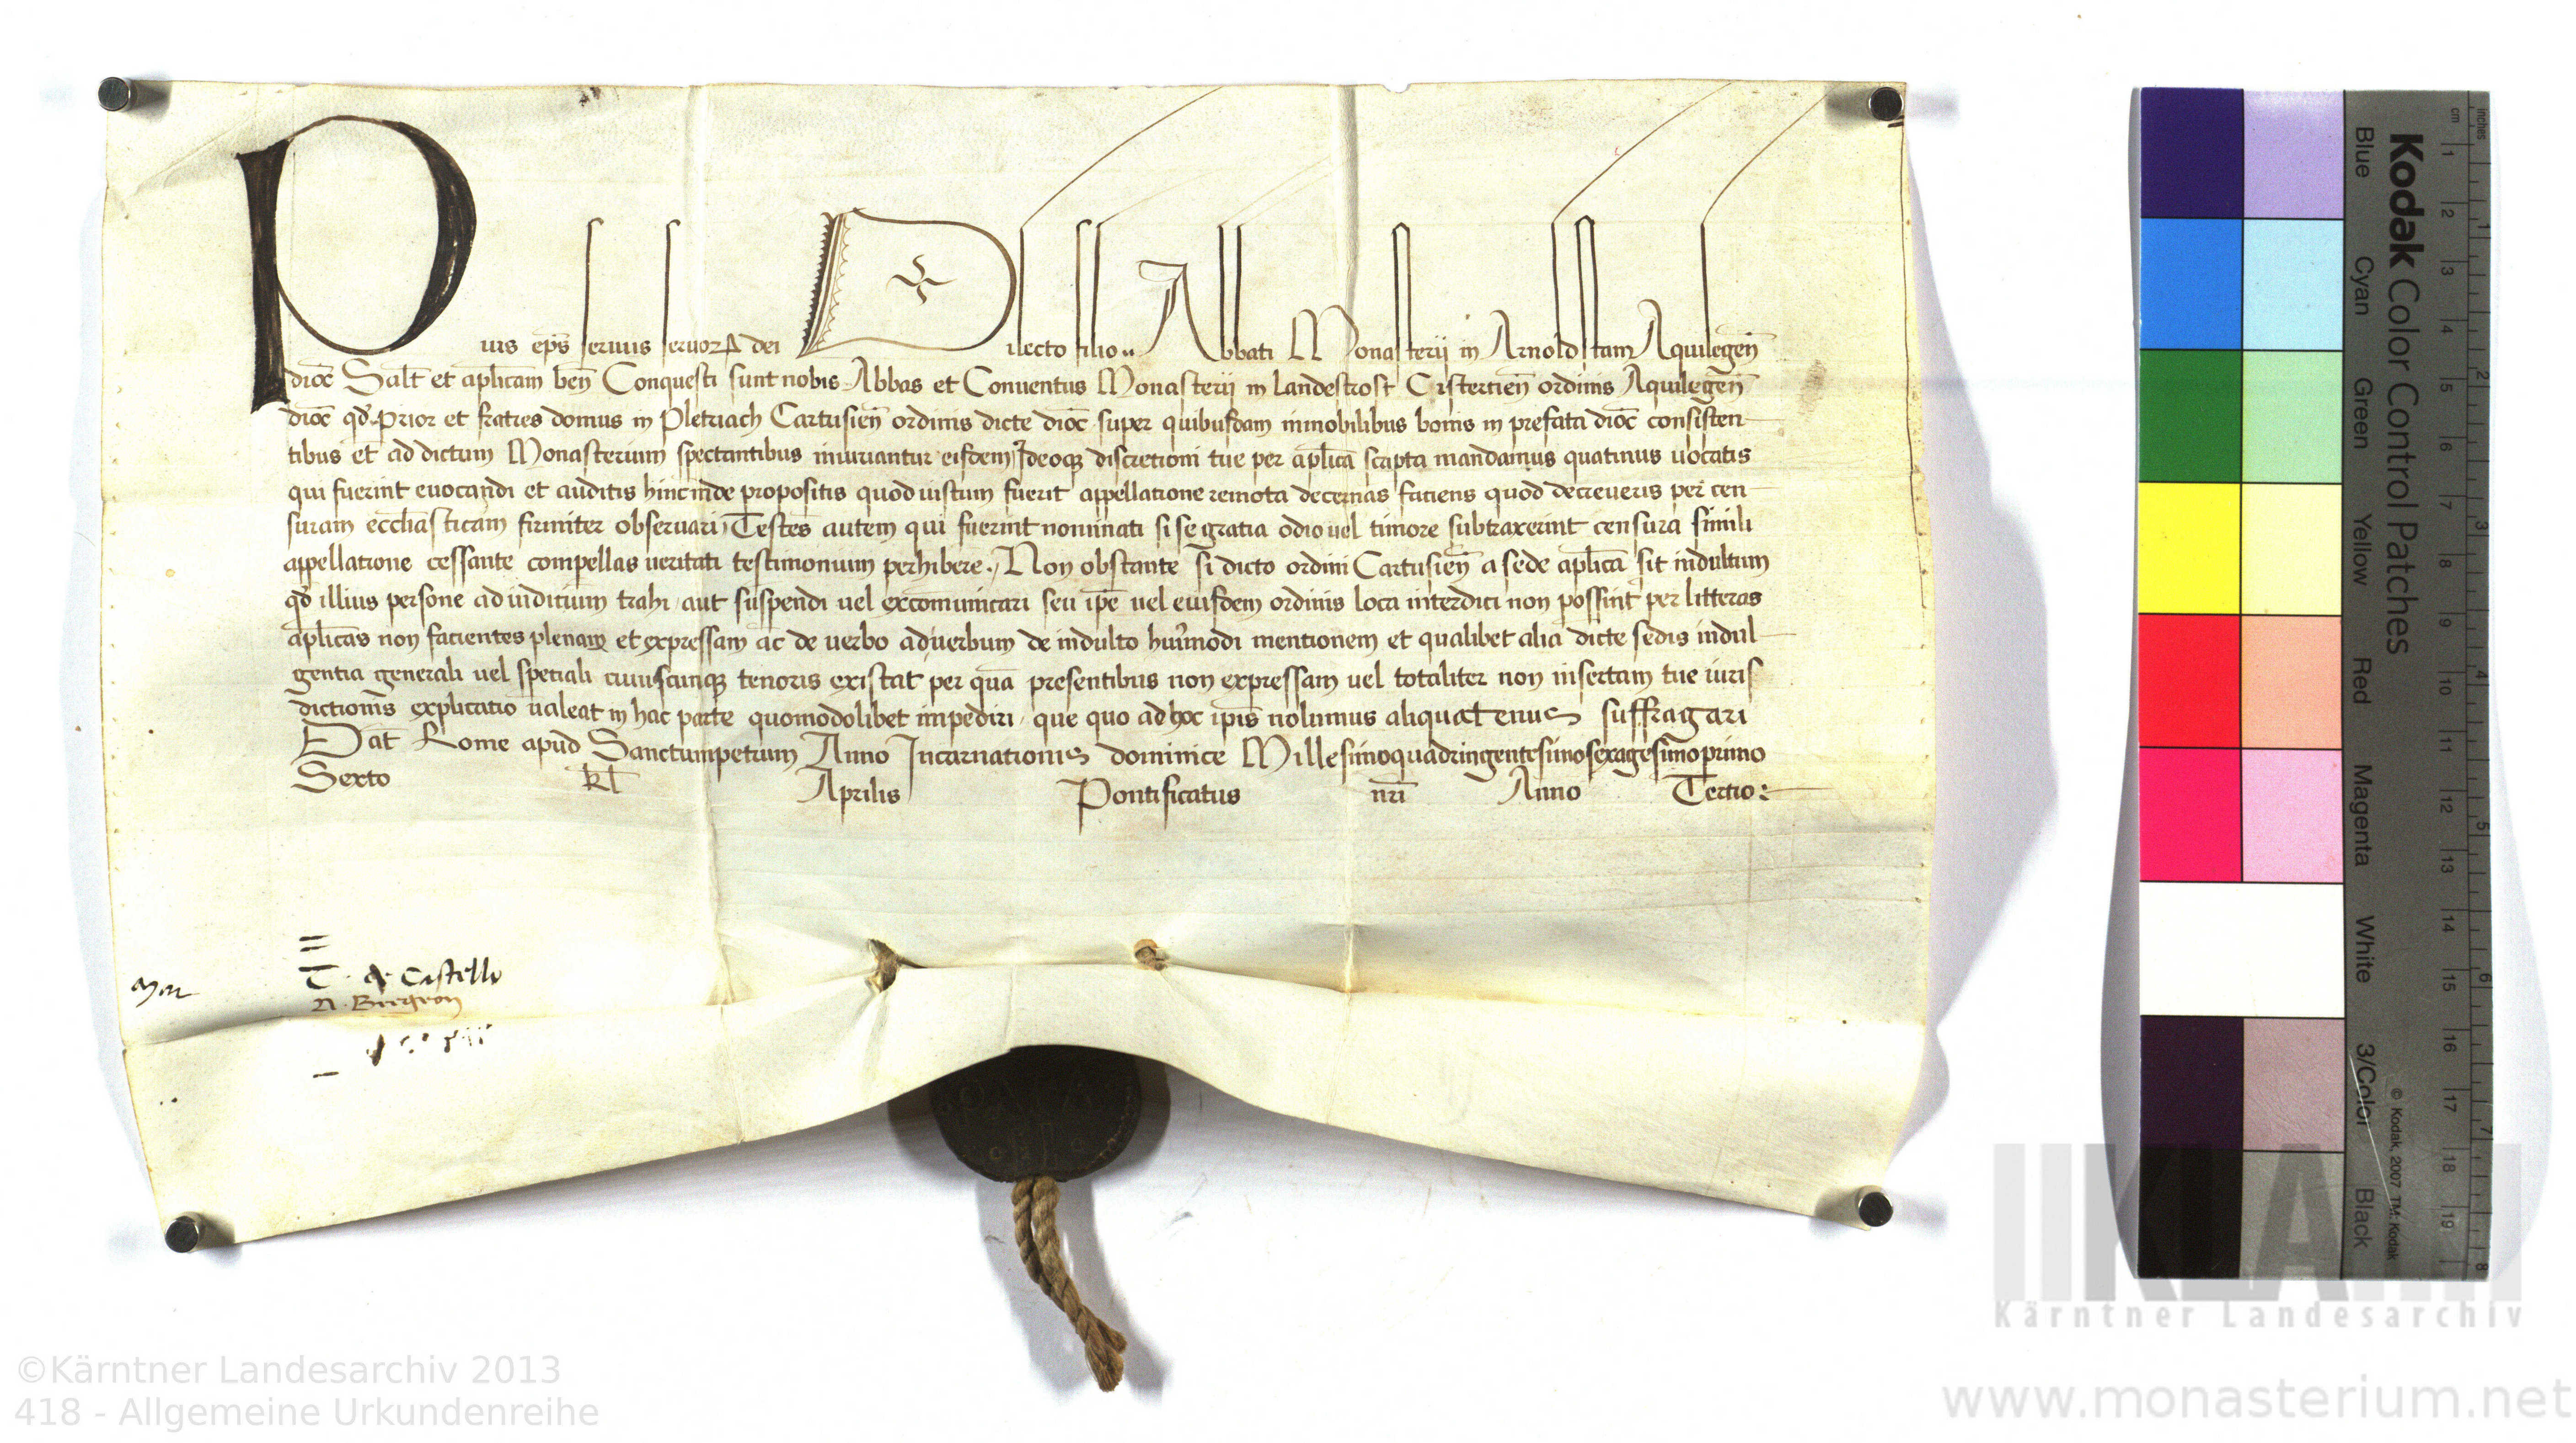 Pius ep̄s seruus seruoꝝ dei Dilecto filio .. Abbati Monasterij in Arnoldstam Aquilegen̄
dioc̄ Salt̄ et ap̄licam ben̄ Conquesti sunt nobis Abbas et Conuentus Monasterij in Landestrost Cistertien̄ ordinis Aquilegen̄
dioc̄ qd̄ Prior et fratres domus in Pletriach Cartusien̄ ordinis dicte dioc̄ super quibusdam inmobilibus bonis in prefata dioc̄ consisten
tibus et ad dictum Monasterium spectantibus iniuriantur eisdem Ideoqꝫ discretioni tue per ap̄lica scripta mandamus quatinus uocatis
qui fuerint euocandi et auditis hincinde propositis quod iustum fuerit appellatione remota decernas faciens quod decreueris per cen
suram eccl̄iasticam firmiter obseruari Testes autem qui fuerint nominati si se gratia odio uel timore subtraxerint censura simili
appellatione cessante compellas ueritati testimonium perhibere. Non obstante si dicto ordini Cartusien̄ a sede ap̄lica sit indultum
qd̄ illius persone ad iudicium trahi aut suspendi uel excōmunicari seu ip̄e uel eiusdem ordinis loca interdici non possint per litteras
ap̄licas non facientes plenam et expressam ac de uerbo ad uerbum de indulto hui᷒modi mentionem et qualibet alia dicte sedis indul
gentia generali uel speciali cuiuscunqꝫ tenoris existat per quā presentibus non expressam uel totaliter non insertam tue iuris
dictionis explicatio ualeat in hac parte quomodolibet impediri que quo ad hoc ip̄is nolumus aliquatenus suffragari
Dat̄ Rome apud Sanctumpetrum Anno Incarnationis dominice Millesimoquadringentesimosexagesimoprimo
Sexto kl̄ Aprilis Pontificatus nr̄i Anno Tertio:
T. de Castello
Kodak Color Control Patches
Blue Cyan Green Yellow Red Magenta White 3/Color Black
© Kodak, 2007 TM: Kodak
inches 1 2 3 4 5 6 7 8
cm 1 2 3 4 5 6 7 8 9 10 11 12 13 14 15 16 17 18 19
KLA
Kärntner Landesarchiv
©Kärntner Landesarchiv 2013
418 - Allgemeine Urkundenreihe
www.monasterium.net